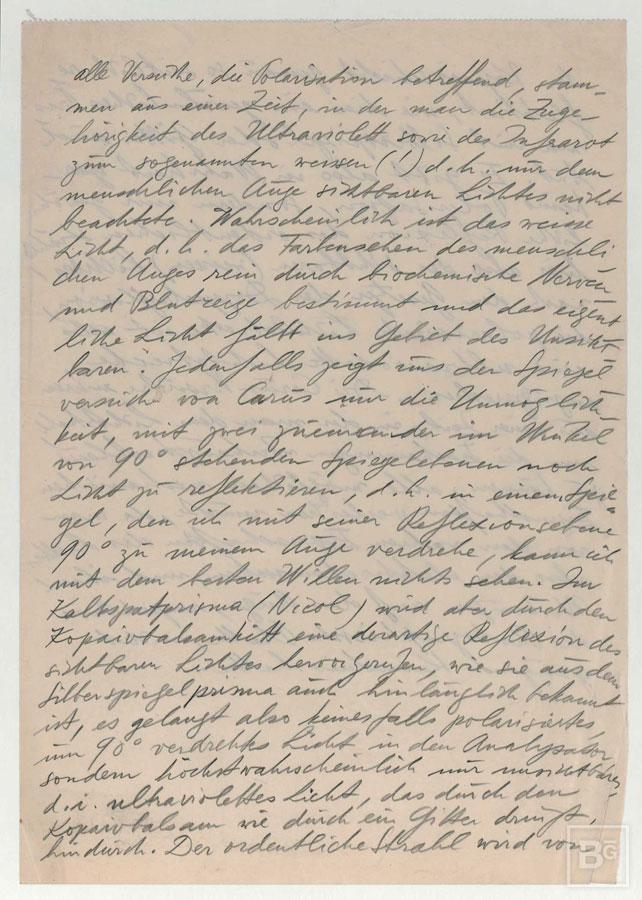 alle Versuche, die Polarisation betreffend, stam-
men aus einer Zeit, in der man die Zuge-
hörigkeit des Ultraviolett sowie des Infrarot
zum sogenannten weissen (!) d.h. nur dem
menschlichen Auge sichtbaren Lichtes nicht
beachtete. Wahrscheinlich ist das weisse
Licht, d.h. das Farbensehen des menschli
chen Auges rein durch biochemische Nerven
und Blutreize bestimmt und das eigent
liche Licht fällt ins Gebiet des Unsicht-
baren. Jedenfalls zeigt uns der Spiegel
versuch von Carus nur die Unmöglich-
keit, mit zwei zueinander im Winkel
von 90° stehenden Spiegelebenen noch
Licht zu reflektieren, d.h. in einem Spie-
gel, den ich mit seiner Reflexionsebene
90° zu meinem Auge verdrehe, kann ich
mit dem besten Willen nichts sehen. Im
Kalkspatprisma (Nicol) wird aber durch den
Kopaivbalsamkitt eine derartige Reflexion des
sichtbaren Lichtes hervorgerufen, wie sie aus dem
Silberspiegelprisma auch hinlänglich bekannt
ist, es gelangt also keinesfalls polarisiertes,
um 90° verdrehtes Licht in den Analysator,
sondern höchstwahrscheinlich nur unsichtbares,
d.i. ultraviolettes Licht, das durch den
Kopaivbalsam wie durch ein Gitter dringt,
hindurch. Der ordentliche Strahl wird vom
BG